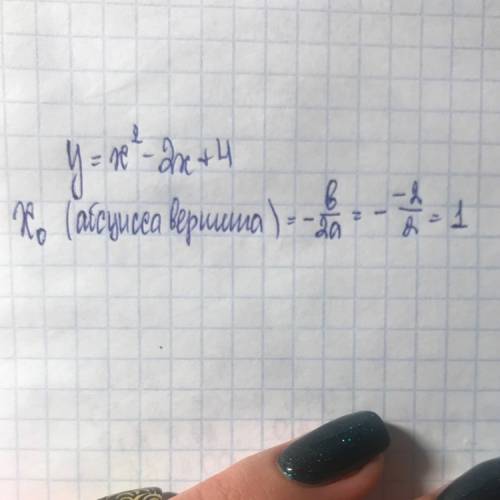 y = x² - 2x + 4
x₀ (абсцисса вершина) = - в/2а = - -2/2 = 1